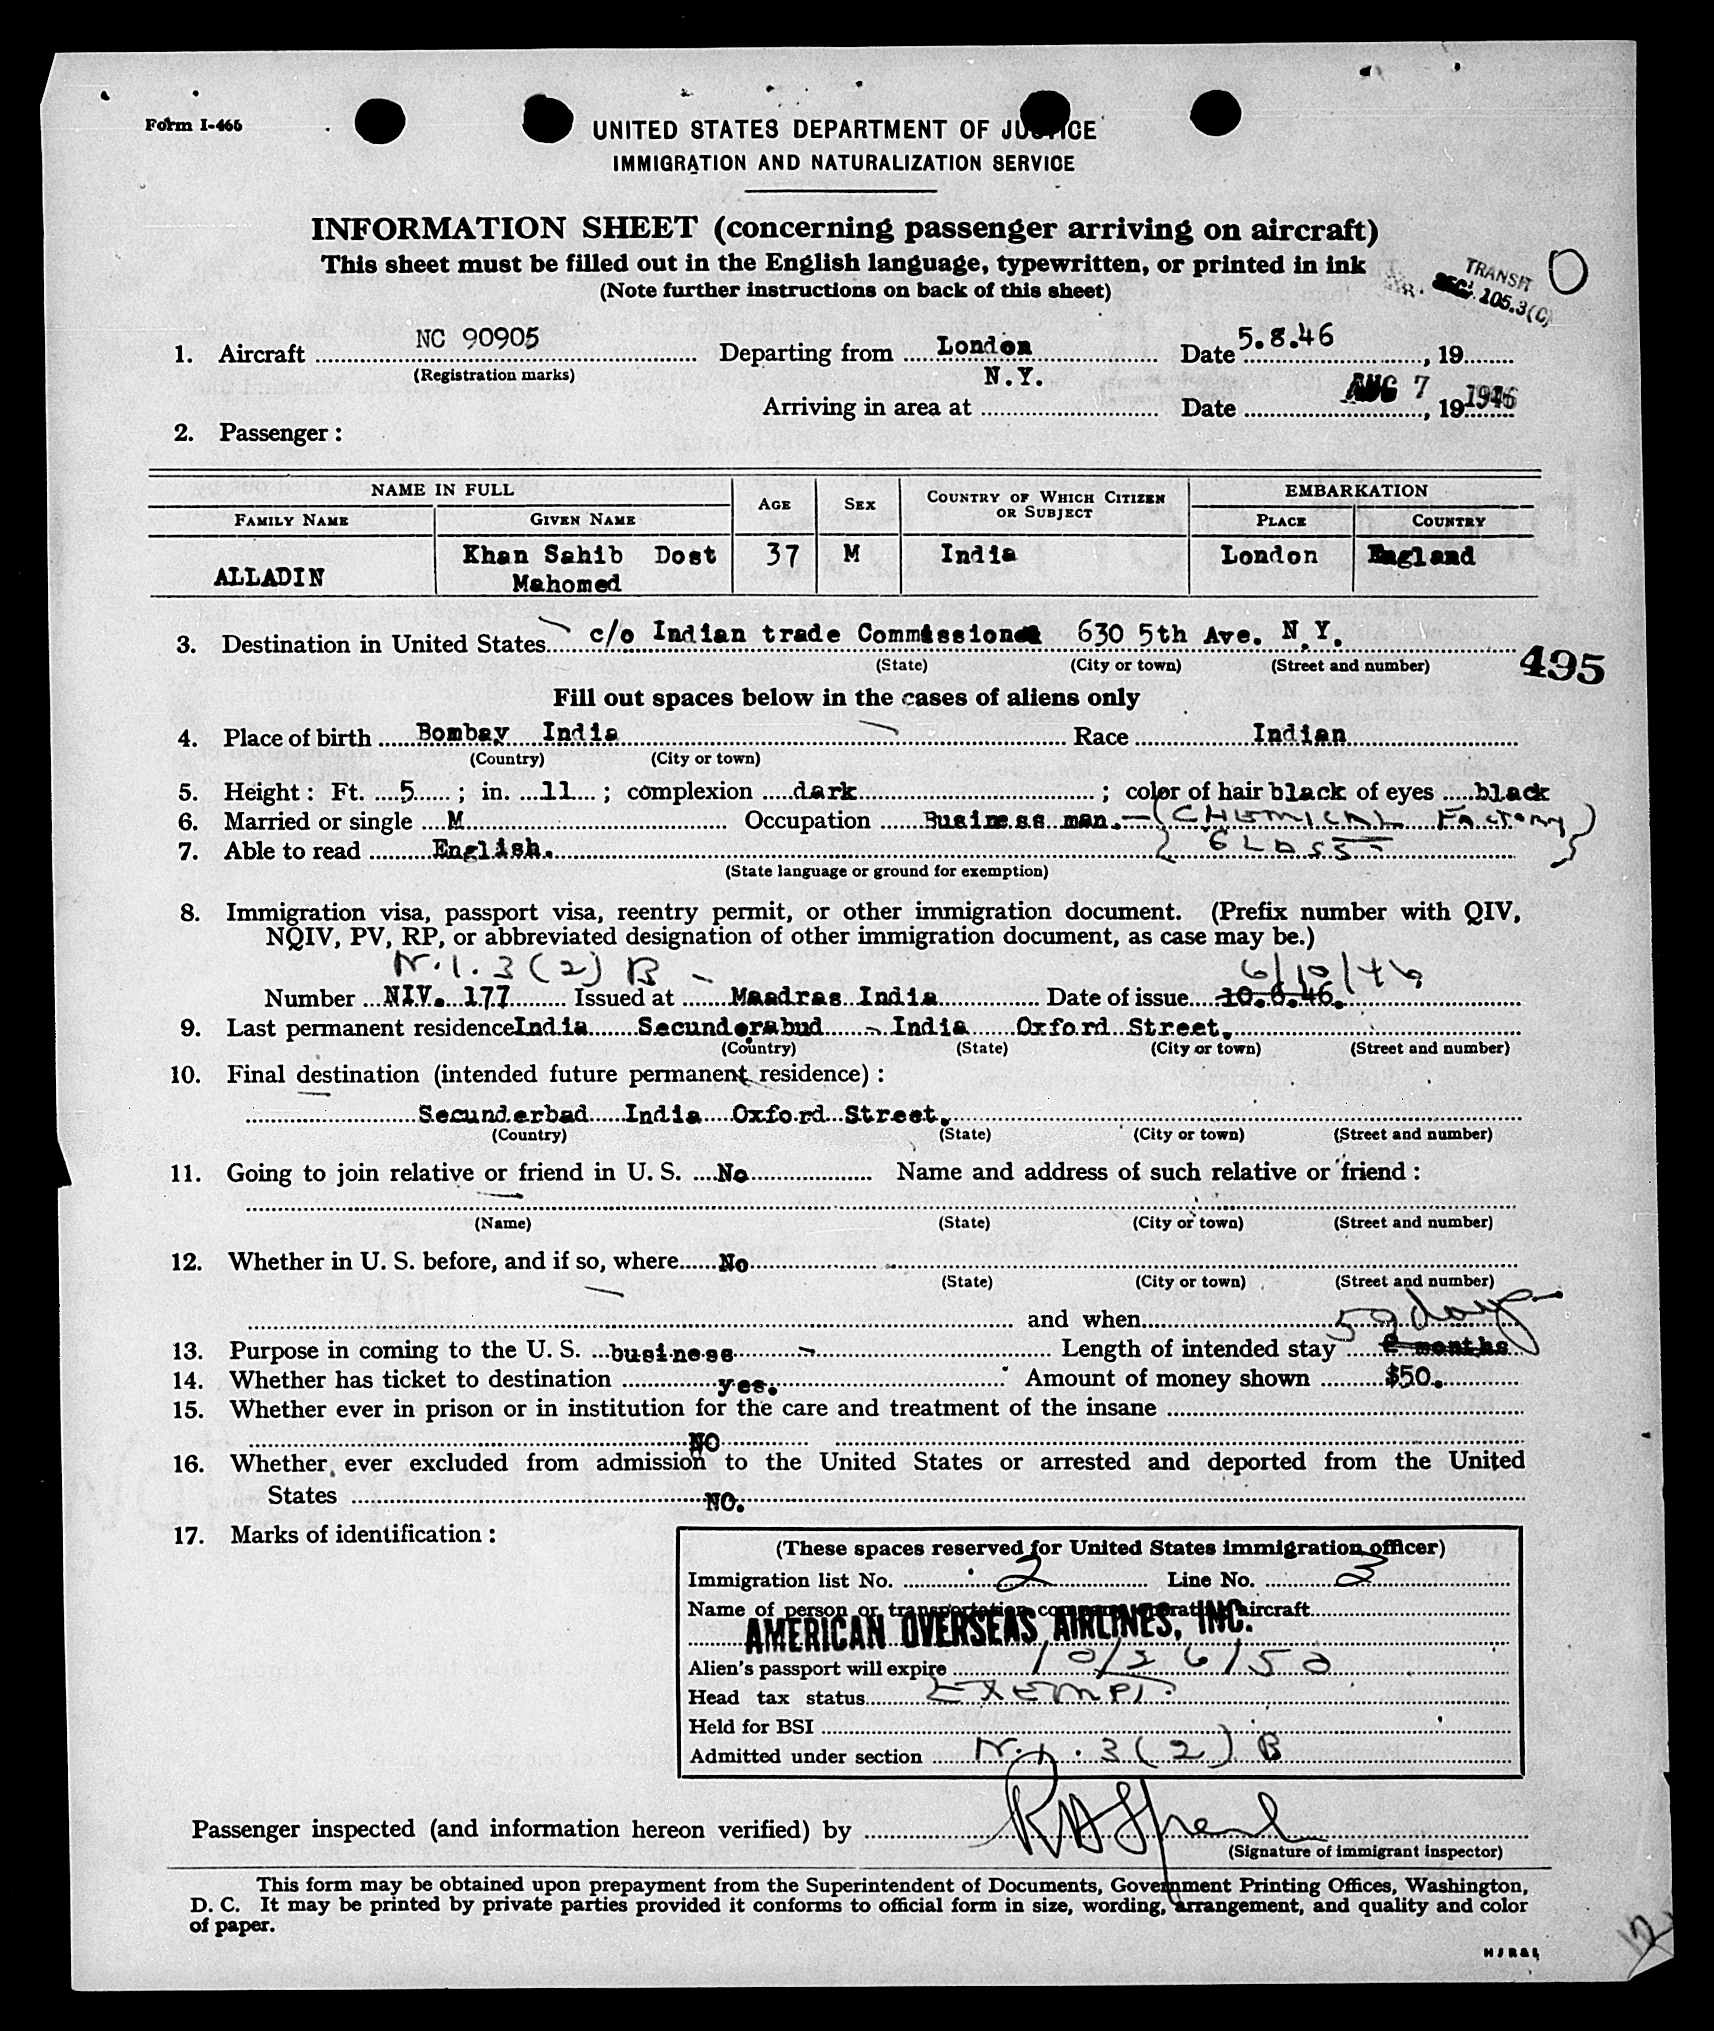 Form I-466
UNITED STATES DEPARTMENT OF JUSTICE
IMMIGRATION AND NATURALIZATION SERVICE
INFORMATION SHEET (concerning passenger arriving on aircraft)
This sheet must be filled out in the English language, typewritten, or printed in ink
(Note further instructions on back of this sheet)
TRANSIT
SEC. 105.3(C)
1. Aircraft NC 90905 Departing from London Date 5.8.46, 19
(Registration marks)
Arriving in area at N.Y. Date AUG 7, 19 1946
2. Passenger:
NAME IN FULL AGE SEX COUNTRY OF WHICH CITIZEN OR SUBJECT EMBARKATION
FAMILY NAME GIVEN NAME PLACE COUNTRY
ALLADIN Khan Sahib Dost Mahomed 37 M India London England
3. Destination in United States c/o Indian trade Commissioner 630 5th Ave. N.Y.
(State) (City or town) (Street and number)
495
Fill out spaces below in the cases of aliens only
4. Place of birth Bombay India Race Indian
(Country) (City or town)
5. Height: Ft. 5; in. 11; complexion dark; color of hair black of eyes black
6. Married or single M Occupation Business man. - (CHEMICAL FACTORY)
7. Able to read English. GLASS
(State language or ground for exemption)
8. Immigration visa, passport visa, reentry permit, or other immigration document. (Prefix number with QIV,
NQIV, PV, RP, or abbreviated designation of other immigration document, as case may be.)
N.I. 3 (2) B 6/10/46
Number NIV. 177 Issued at Maadras India Date of issue 10.6.46.
9. Last permanent residence India Secunderabud India Oxford Street.
(Country) (State) (City or town) (Street and number)
10. Final destination (intended future permanent residence):
Secunderbad India Oxford Street.
(Country) (State) (City or town) (Street and number)
11. Going to join relative or friend in U. S. No Name and address of such relative or friend:
(Name) (State) (City or town) (Street and number)
12. Whether in U. S. before, and if so, where No
(State) (City or town) (Street and number)
and when
59 days
13. Purpose in coming to the U. S. business Length of intended stay months
14. Whether has ticket to destination yes. Amount of money shown $50.
15. Whether ever in prison or in institution for the care and treatment of the insane
NO
16. Whether ever excluded from admission to the United States or arrested and deported from the United
States NO.
17. Marks of identification:
(These spaces reserved for United States immigration officer)
Immigration list No. 2 Line No. 3
Name of person or transportation company operating aircraft
AMERICAN OVERSEAS AIRLINES, INC.
Alien's passport will expire 10/26/50
Head tax status EXEMPT.
Held for BSI
Admitted under section N.I. 3 (2) B
Passenger inspected (and information hereon verified) by
(Signature of immigrant inspector)
This form may be obtained upon prepayment from the Superintendent of Documents, Government Printing Offices, Washington,
D. C. It may be printed by private parties provided it conforms to official form in size, wording, arrangement, and quality and color
of paper.